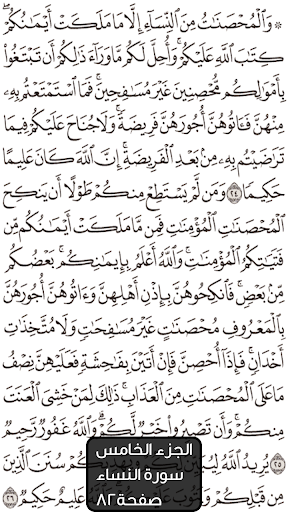 ۞ وَٱلْمُحْصَنَٰتُ مِنَ ٱلنِّسَآءِ إِلَّا مَا مَلَكَتْ أَيْمَٰنُكُمْ ۖ
كِتَٰبَ ٱللَّهِ عَلَيْكُمْ ۚ وَأُحِلَّ لَكُم مَّا وَرَآءَ ذَٰلِكُمْ أَن تَبْتَغُوا۟
بِأَمْوَٰلِكُم مُّحْصِنِينَ غَيْرَ مُسَٰفِحِينَ ۚ فَمَا ٱسْتَمْتَعْتُم بِهِۦ
مِنْهُنَّ فَـَٔاتُوهُنَّ أُجُورَهُنَّ فَرِيضَةً ۚ وَلَا جُنَاحَ عَلَيْكُمْ فِيمَا
تَرَٰضَيْتُم بِهِۦ مِنۢ بَعْدِ ٱلْفَرِيضَةِ ۚ إِنَّ ٱللَّهَ كَانَ عَلِيمًا
حَكِيمًا ٢٤ وَمَن لَّمْ يَسْتَطِعْ مِنكُمْ طَوْلًا أَن يَنكِحَ
ٱلْمُحْصَنَٰتِ ٱلْمُؤْمِنَٰتِ فَمِن مَّا مَلَكَتْ أَيْمَٰنُكُم مِّن
فَتَيَٰتِكُمُ ٱلْمُؤْمِنَٰتِ ۚ وَٱللَّهُ أَعْلَمُ بِإِيمَٰنِكُم ۚ بَعْضُكُم
مِّنۢ بَعْضٍ ۚ فَٱنكِحُوهُنَّ بِإِذْنِ أَهْلِهِنَّ وَءَاتُوهُنَّ أُجُورَهُنَّ
بِٱلْمَعْرُوفِ مُحْصَنَٰتٍ غَيْرَ مُسَٰفِحَٰتٍ وَلَا مُتَّخِذَٰتِ
أَخْدَانٍ ۚ فَإِذَآ أُحْصِنَّ فَإِنْ أَتَيْنَ بِفَٰحِشَةٍ فَعَلَيْهِنَّ نِصْفُ
مَا عَلَى ٱلْمُحْصَنَٰتِ مِنَ ٱلْعَذَابِ ۚ ذَٰلِكَ لِمَنْ خَشِىَ ٱلْعَنَتَ
مِنكُمْ ۚ وَأَن تَصْبِرُوا۟ خَيْرٌ لَّكُمْ ۗ وَٱللَّهُ غَفُورٌ رَّحِيمٌ
٢٥ يُرِيدُ ٱللَّهُ لِيُبَيِّنَ سُنَنَ ٱلَّذِينَ
مِن قَبْلِكُمْ عَلِيمٌ حَكِيمٌ ٢٦
الجزء الخامس
سورة النساء
صفحة ٨٢